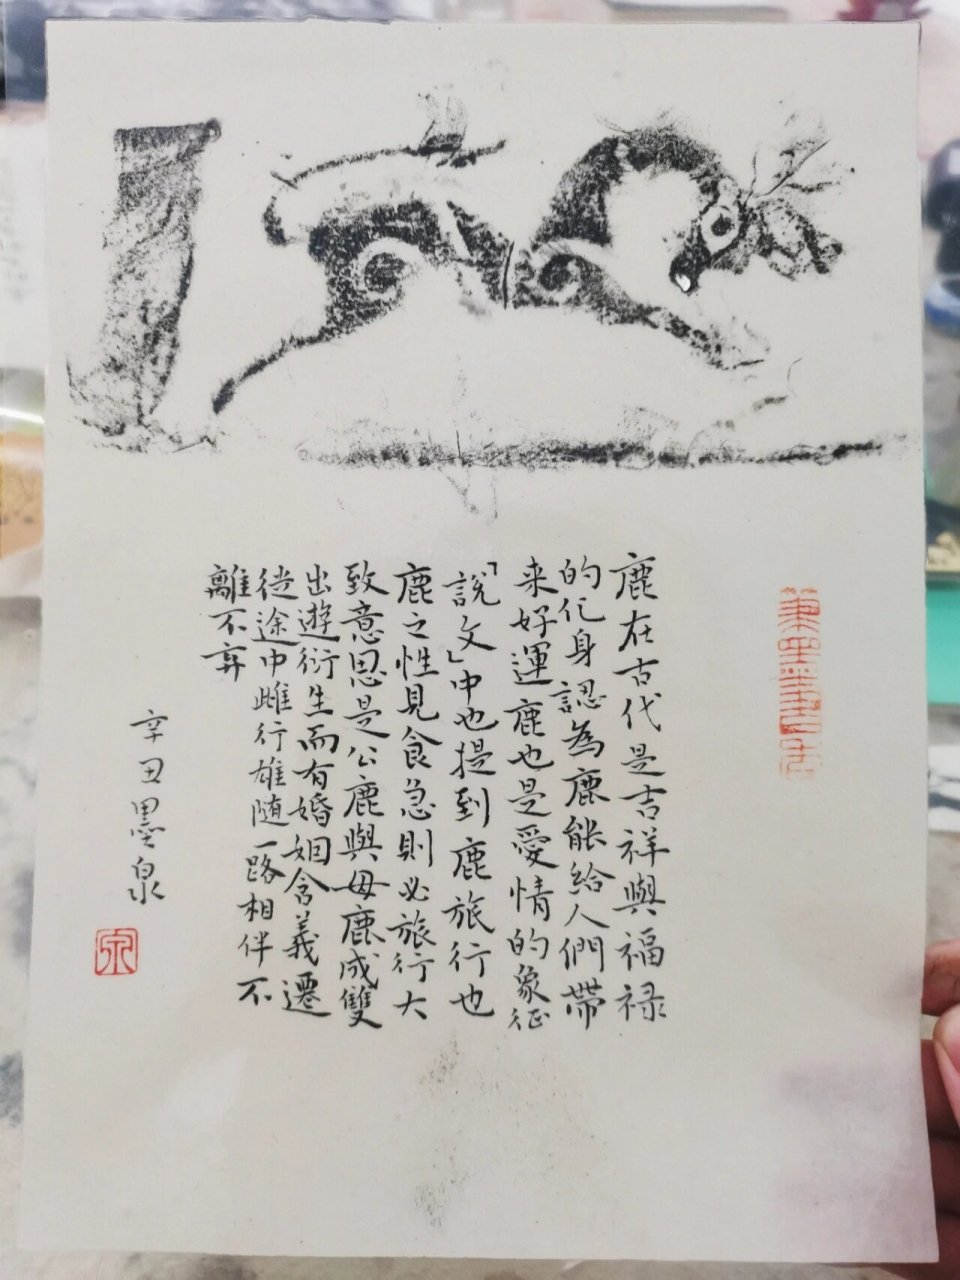 鹿在古代是吉祥與福禄
的化身認為鹿能給人們帶
来好運鹿也是愛情的象征
「説文」中也提到鹿旅行也
鹿之性見食急則必旅行大
致意思是公鹿與母鹿成雙
出遊衍生而有婚姻含義遷
徙途中雌行雄随一路相伴不
離不棄
辛丑墨泉
泉